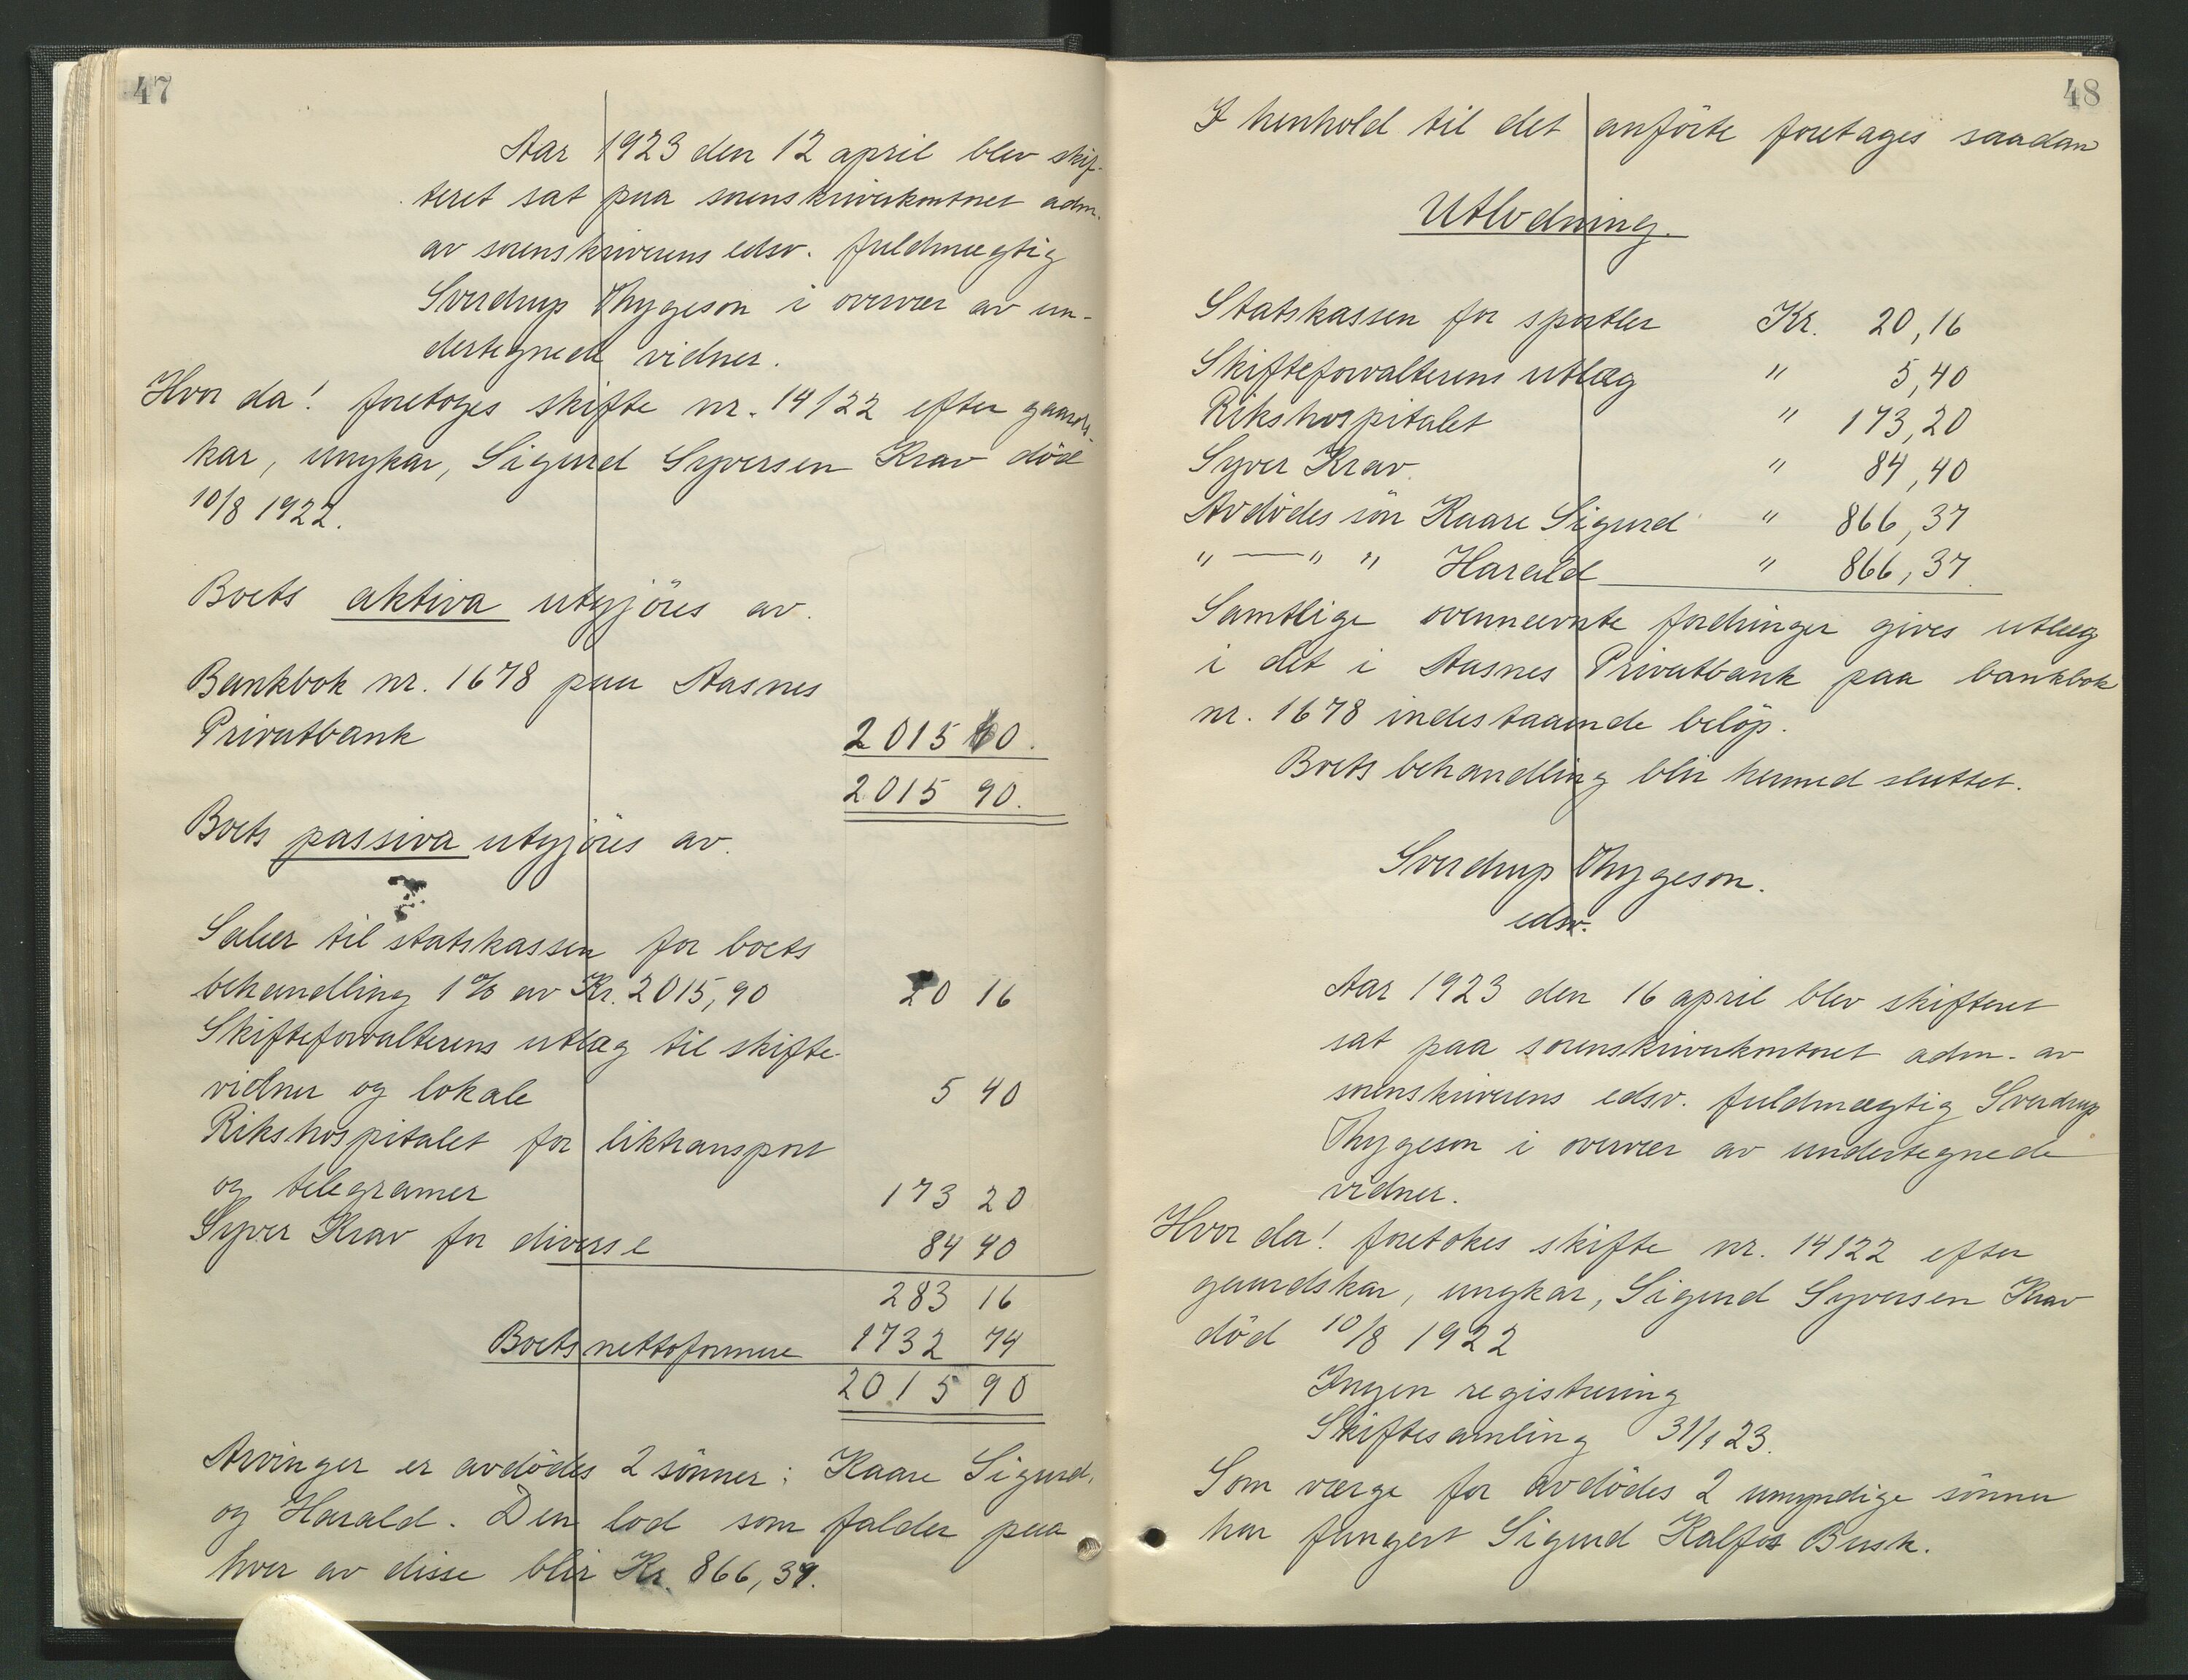 47
Aar 1923 den 12 april blev skif-
teret sat paa sorenskriverkontoret adm.
av sorenskriverens edsv. fuldmægtig
Sverdrup Thygeson i overvær av un-
dertegnede vidner.
Hvor da! foretoges skifte nr. 14/22 efter gaards-
kar, ungkar, Sigurd Syversen Krav död
10/8 1922.
Boets aktiva utgjöres av.
Bankbok nr. 1678 paa Aasnes
Privatbank 2015 90.
2015 90.
Boets passiva utgjöres av.
Salær til statskassen for boets
behandling 1% av Kr. 2015,90 20 16
Skifteforvalterens utlæg til skifte-
vidner og lokale 5 40
Rikshospitalet for liktransport
og telegramer 173 20
Syver Krav for diverse 84 40
283 16
Boets nettoformue 1732 74
2015 90
Arvinger er avdödes 2 sönner: Kaare Sigurd,
og Harald. Den lod som falder paa
hver av disse blir Kr. 866,37.
48
I henhold til det anförte foretages saadan
Utlodning.
Statskassen for sportler Kr. 20,16
Skifteforvalterens utlæg " 5,40
Rikshospitalet " 173,20
Syver Krav " 84,40
Avdödes sön Kaare Sigurd " 866,37
" — " " Harald " 866,37.
Samtlige ovennævnte fordringer gives utlæg
i det i Aasnes Privatbank paa bankbok
nr. 1678 indestaaende belöp.
Boets behandling blir hermed sluttet.
Sverdrup Thygeson.
edsv.
Aar 1923 den 16 april blev skifteret
sat paa sorenskriverkontoret adm. av
sorenskriverens edsv. fuldmægtig Sverdrup
Thygeson i overvær av undertegnede
vidner.
Hvor da! foretokes skifte nr. 14/22 efter
gaardskar, ungkar, Sigurd Syversen Krav
död 10/8 1922
Ingen registrering
Skiftesamling 31/1 23.
Som værge for avdödes 2 umyndige sönner
har fungert Sigurd Kalfos Busk.